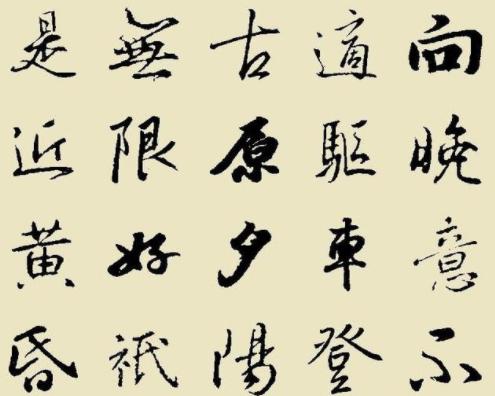 向晚意不
適驅車登
古原夕陽
無限好祇
是近黄昏